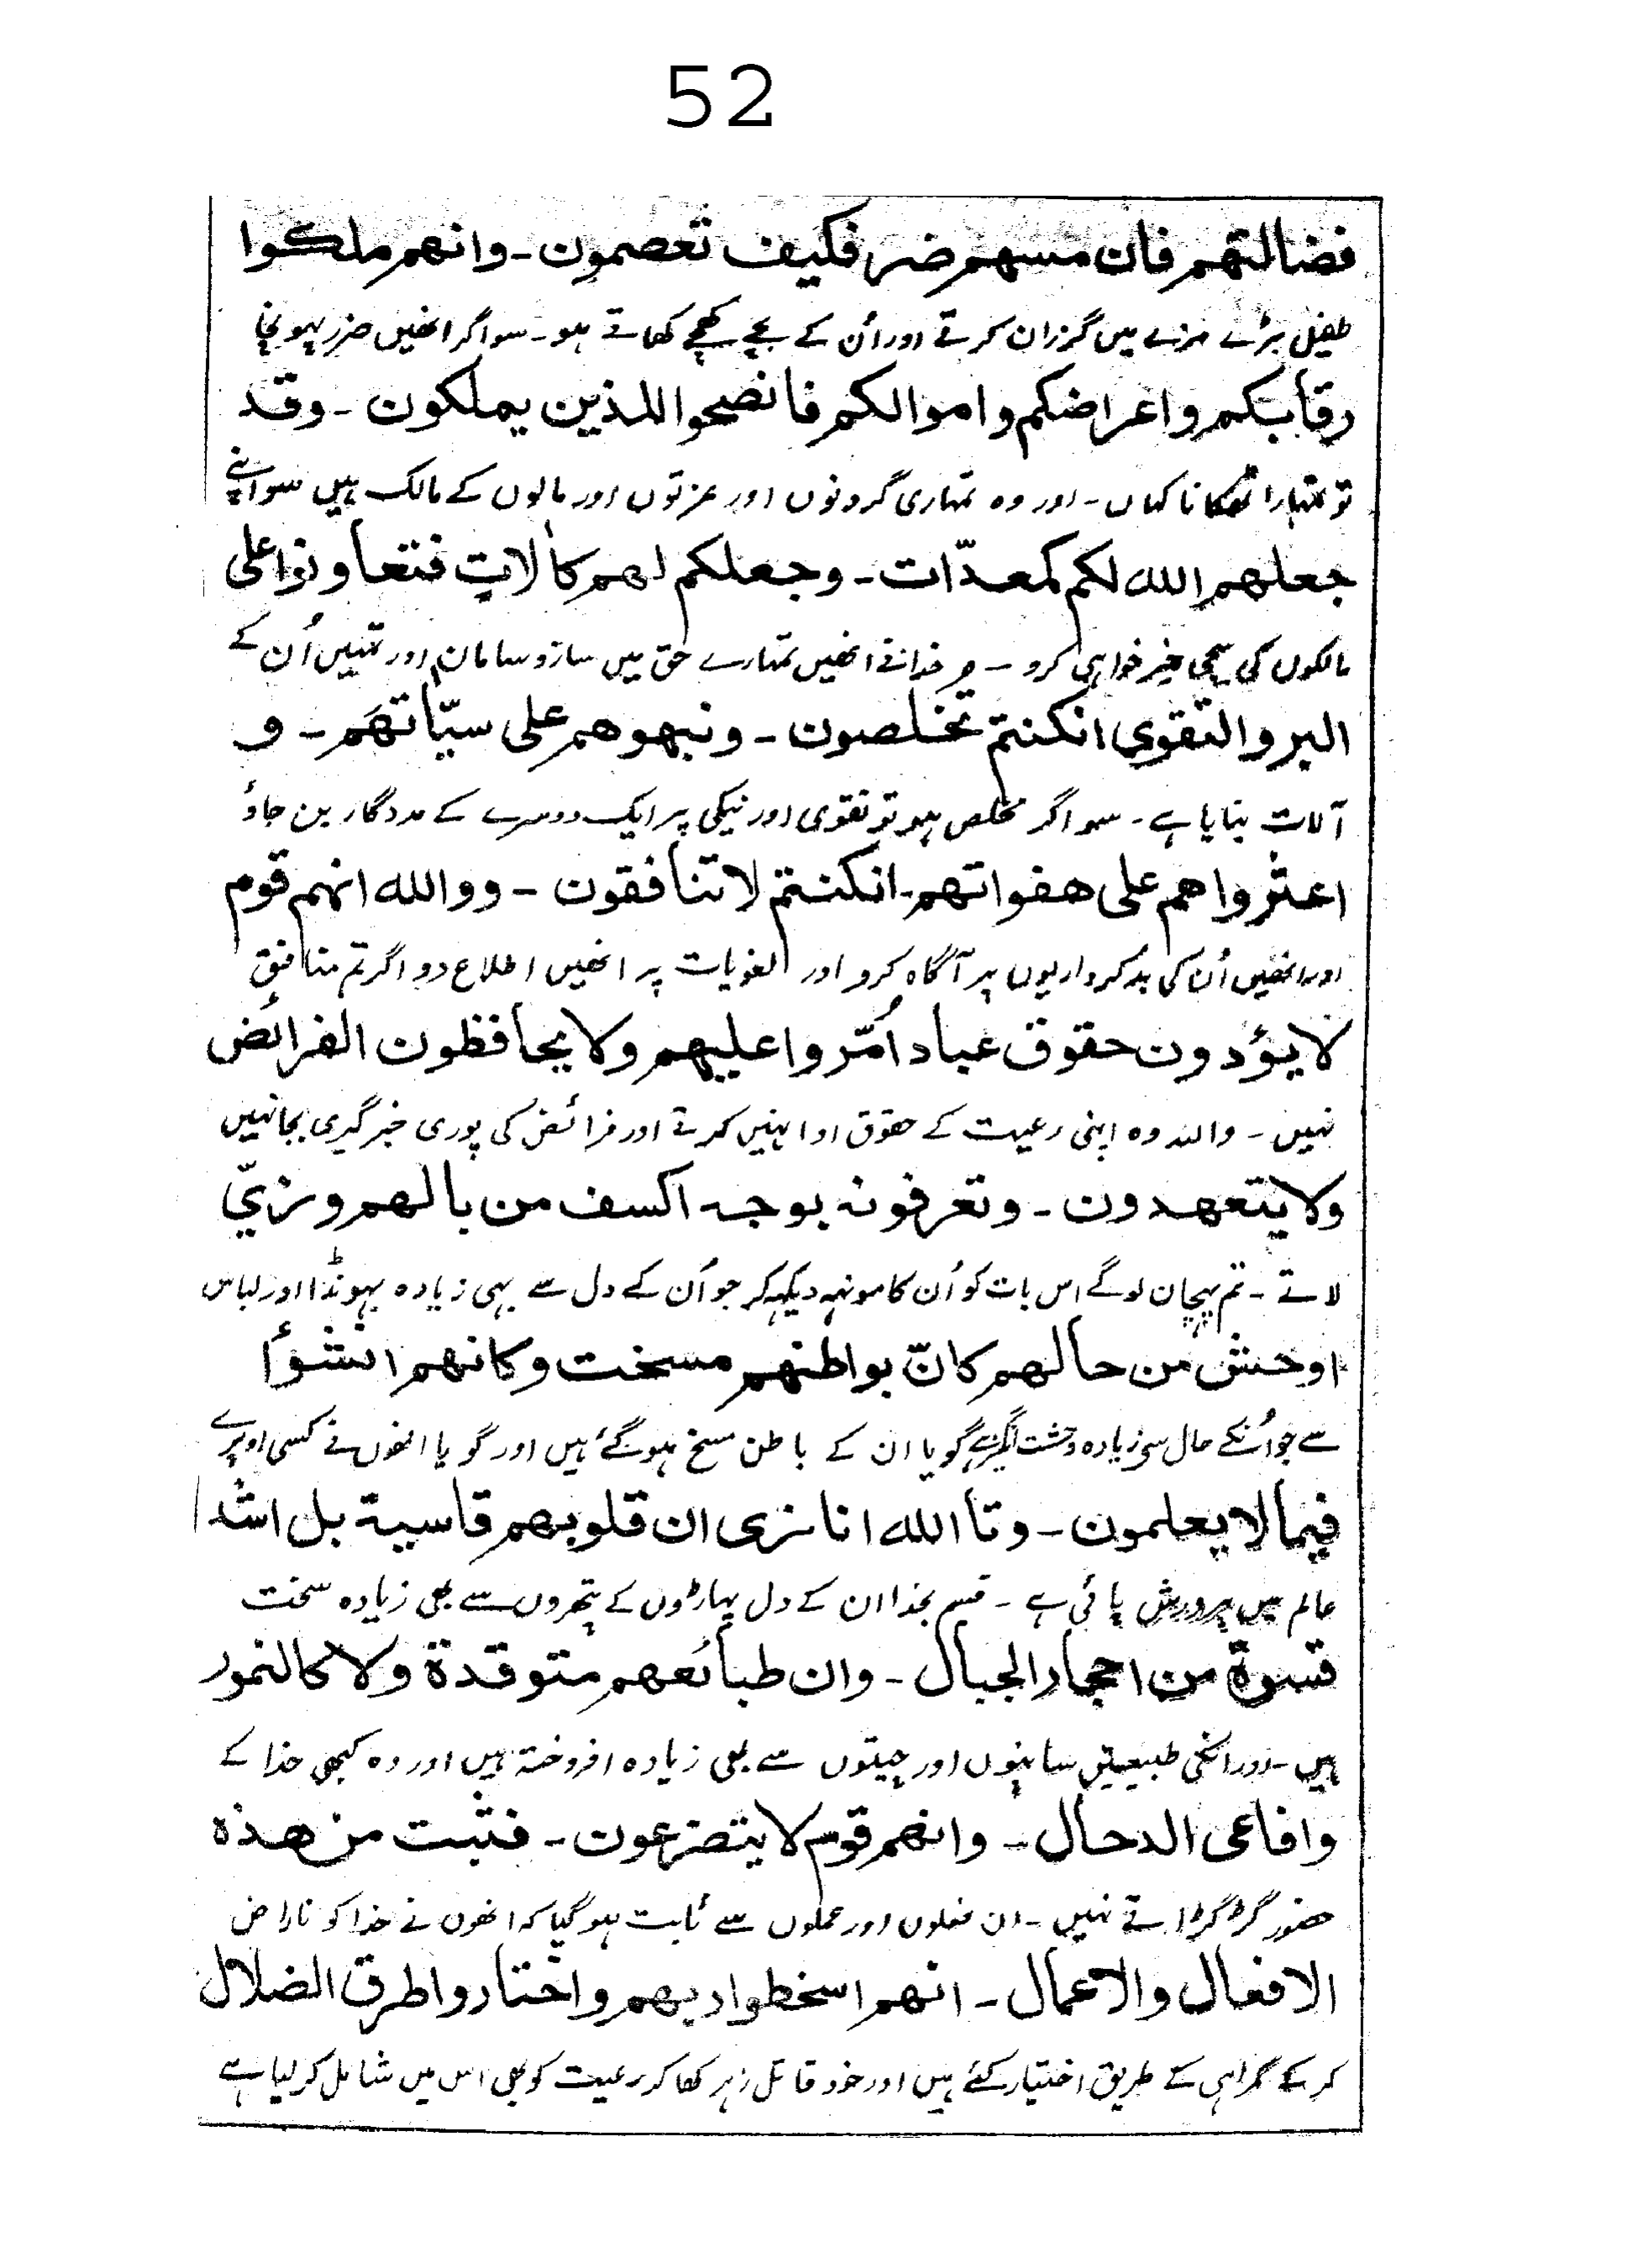 52
فضالتهم فان مسهم ضر فكيف تعصمون - وانهم ملكوا
طفیل بڑے مزے میں گزران کرتے اور اُن کے بچے کھچے کھاتے ہو - سو اگر انھیں ضرر پہونچا
رقابكم واعراضكم واموالكم فانصحوا للذين يملكون - وقد
تو تمہارا ٹھکانا کہاں - اور وہ تمہاری گردنوں اور عزتوں اور مالوں کے مالک ہیں سو اپنے
جعلهم الله لكم كمعدّات - وجعلكم لهم كاٰلات فتعاونوا على
مالکوں کی سچی خیر خواہی کرو - خدا نے انھیں تمہارے حق میں ساز و سامان اور تمہیں اُن کے
البر والتقوى انكنتم تخلصون - ونبهوهم على سيّاتهم - و
آلات بنایا ہے - سو اگر مخلص ہو تو تقوی اور نیکی پر ایک دوسرے کے مددگار بن جاؤ
اعثروا هم على هفواتهم - انكنتم لاتنافقون - ووالله انهم قوم
اور انھیں اُن کی بدکرداریوں پر آگاہ کرو اور لغویات پر انھیں اطلاع دو اگر تم منافق
لا يؤدون حقوق عباد اُمّروا عليهم ولا يحافظون الفرائض
نہیں - واللہ وہ اپنی رعیت کے حقوق ادا نہیں کرتے اور فرائض کی پوری خبر گیری بجا نہیں
ولا يتعهدون - وتعرفونه بوجه اكسف من بالهم وزيّ
لاتے - تم پہچان لوگے اس بات کو اُن کا مونہہ دیکہہ کر جو اُن کے دل سے بہی زیادہ بہونڈا اور لباس
اوحش من حالهم كانّ بواطنهم مسخت وكانهم انشؤا
سے جو اُنکے حال سی زیادہ وحشت انگیز ہے گویا ان کے باطن مسخ ہو گئے ہیں اور گویا انھوں نے کسی اوپرے
فيما لا يعلمون - وتا الله انا نرى ان قلوبهم قاسية بل اشد
عالم میں پرورش پائی ہے - قسم بخدا ان کے دل پہاڑوں کے پتھروں سے بھی زیادہ سخت
قسوة من احجار الجبال - وان طبائعهم متوقدة ولا كالنمور
ہیں - اور انکی طبیعتیں سانپوں اور چیتوں سے بھی زیادہ افروختہ ہیں اور وہ کبھی خدا کے
وافاعى الدحال - وانهم قوم لا يتضرعون - فثبت من هذه
حضور گڑگڑاتے نہیں - ان فعلوں اور عملوں سے ثابت ہو گیا کہ انھوں نے خدا کو ناراض
الافعال والاعمال - انهم اسخطوا ربهم واختاروا طرق الضلال
کر کے گمراہی کے طریق اختیار کئے ہیں اور خود قاتل زہر کھا کر رعیت کو بھی اس میں شامل کر لیا ہے